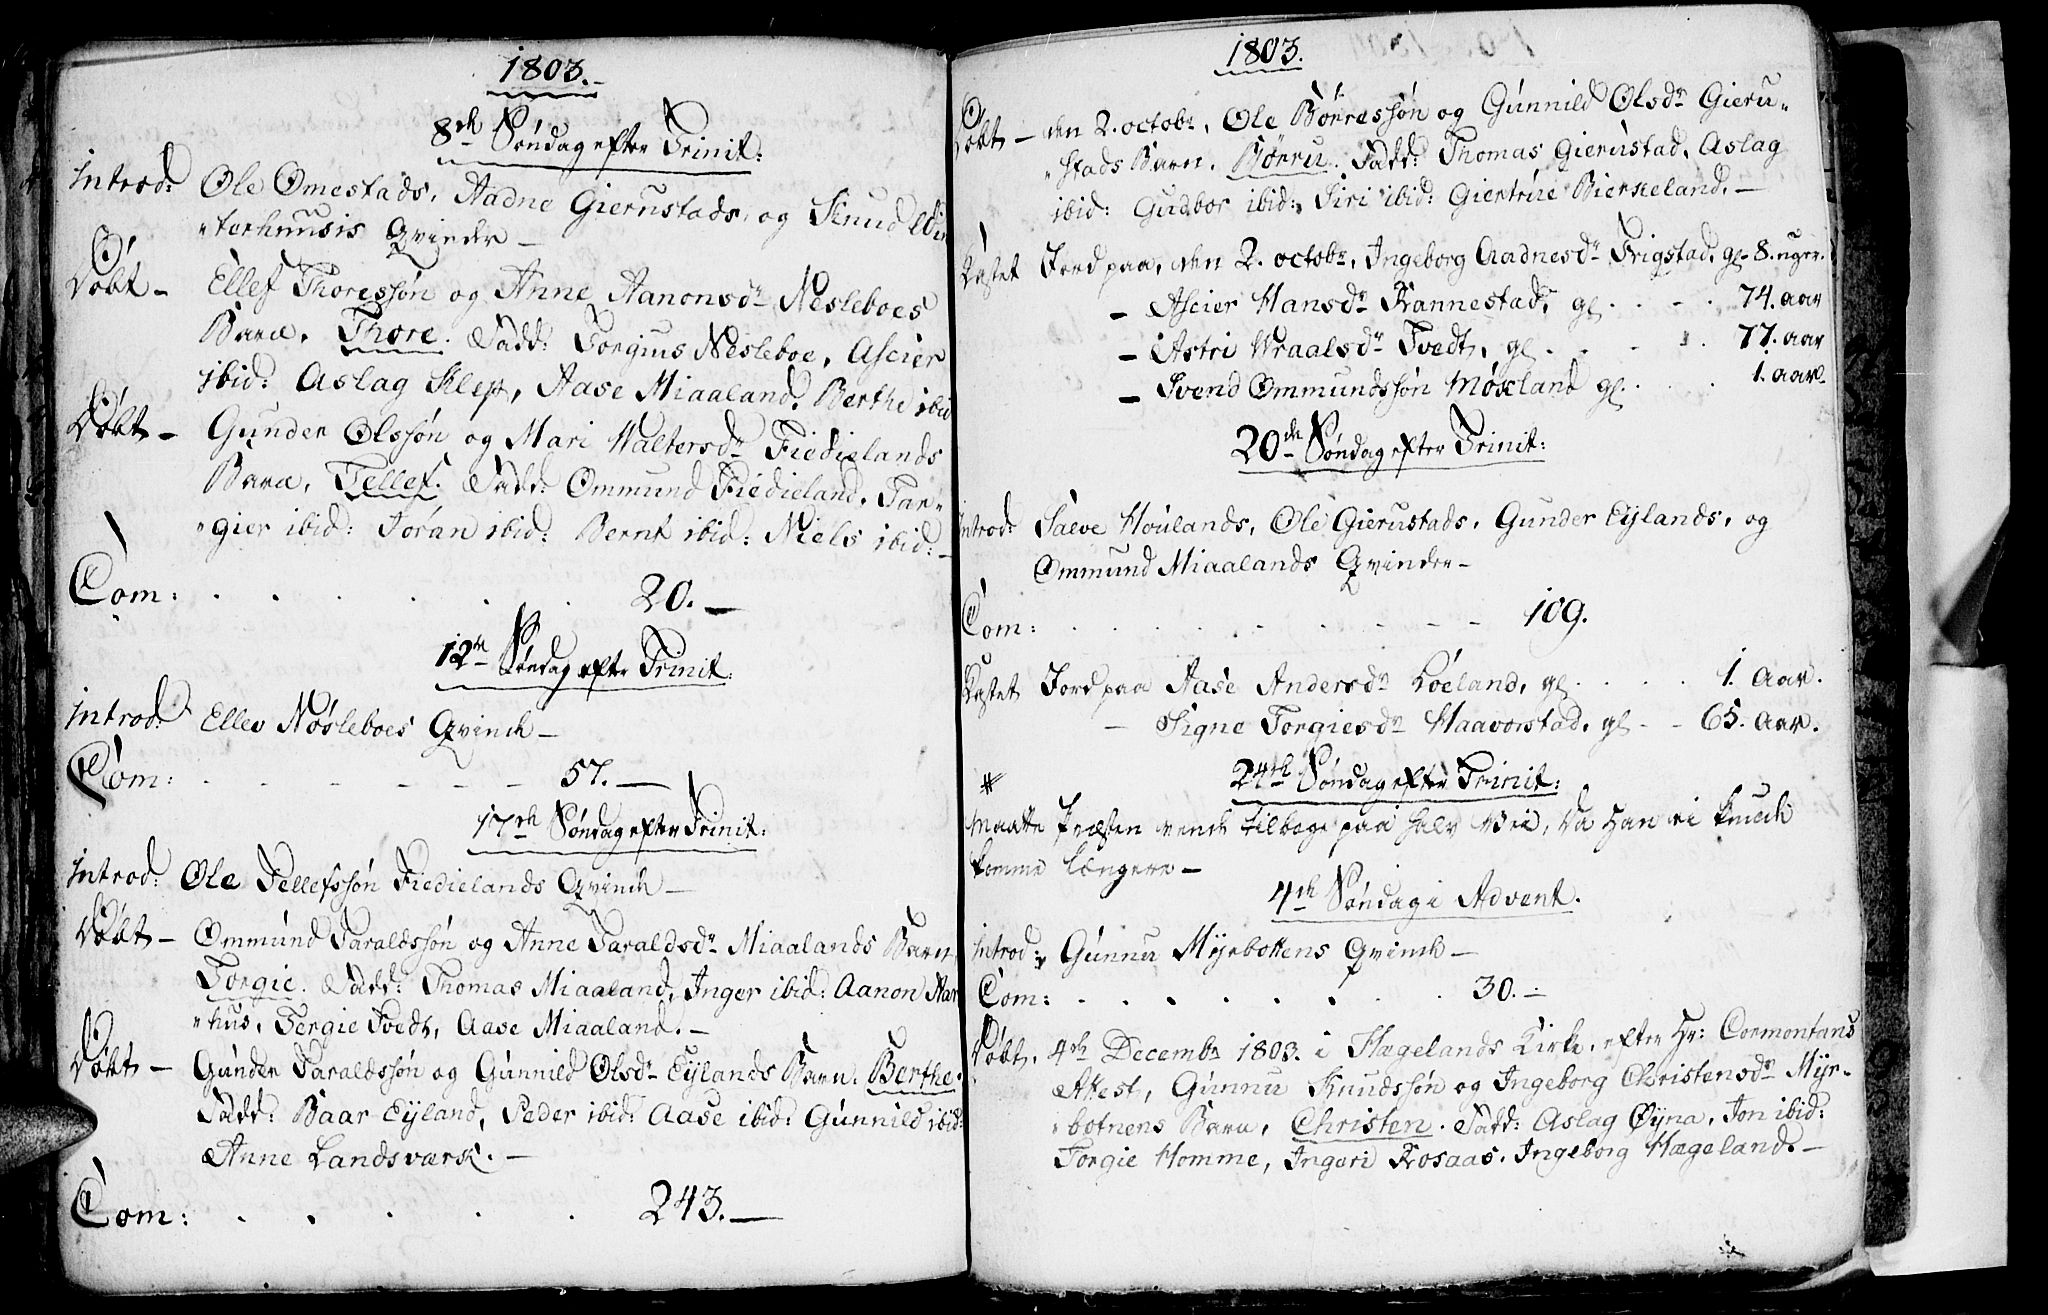 1803.
8de Søndag efter Trinit:
Introd: Ole Omestads, Aadne Gierustads, og Knud
"terhuusis Qvinder —
Døbt — Ellef Thoressøn og Anne Aanonsdr Nesleboes
Barn, Thore. Fadd: Torgius Nesleboe, Ascier
ibid: Aslag Klep, Aase Miaaland, Berthe ibid
Døbt — Gunder Olssøn og Mari Waltersdr Fiedielands
Barn, Tellef. Fadd: Ommund Fiedieland, Tar"
"gier ibid: Joran ibid: Bernt ibid: Niels ibid: —
Com: . . . . . . 20. —
12te Søndag efter Trinit:
Introd: Ellev Nøsleboes Qvinde —
Com: . . — — — — 57. —
17de Søndag efter Trinit:
Introd: Ole Tellefssøn Fiedielands Qvinde —
Døbt — Ommund Taraldssøn og Anne Taraldsdr Miaalands Barn
Torgie. Fadd: Thomas Miaaland, Inger ibid: Aanon Aar
"hus, Tergie Tvedt, Aase Miaaland. —
Døbt — Gunder Taraldssøn og Gunnild Olsdr Eylands Barn. Berthe.
Fadd: Baar Eyland, Peder ibid: Aase ibid: Gunnild ibid:
Anne Landsværk. —
Com: . . . . . 243. —
1803.
Døbt — den 2. octobr, Ole Børressøn og Gunnild Olsdr Gieru"
"stads Barn. Børru. Fadd: Thomas Gierustad, Aslag
ibid: Gudbor ibid: Siri ibid: Giertrue Bierkeland. —
Kastet Jord paa, den 2. octobr, Ingeborg Aadnesdr Frigstad, gl. 8. uger.
— Ascier Hansdr Kannestad, gl. . . . 74. aar
— Astri Wraalsdr Tvedt, gl. . . . 77. aar
— Svend Ommundssøn Møxland gl. . . . 1. aar
20de Søndag efter Trinit:
Introd: Salve Houlands, Ole Gierustads, Gunder Eylands, og
Ommund Miaalands Qvinder —
Com: . . . . . . . — — — 109.
Kastet Jord paa Aase Andersdr Løeland, gl . . . . 1. Aar.
— Signe Torgiesdr Haavorstad, gl — — 65. Aar.
24de Søndag efter Trinit:
Maatte Præsten vende tilbage paa halv Vei, da han ei kunde
komme længere —
4de Søndag i Advent.
Introd: Gunnu Myrbottens Qvinde —
Com: . . . . . . . 30. —
Døbt, 4de Decembr 1803. i Hægelands Kirke, efter Hr: Cormontans
Attest, Gunnu Knudssøn og Ingeborg Christensdr Myr-
"botnens Barn, Christen. Fadd: Aslag Øyna, Jon ibid:
Torgie Homme, Ingeri Rosaas, Ingeborg Hægeland. —